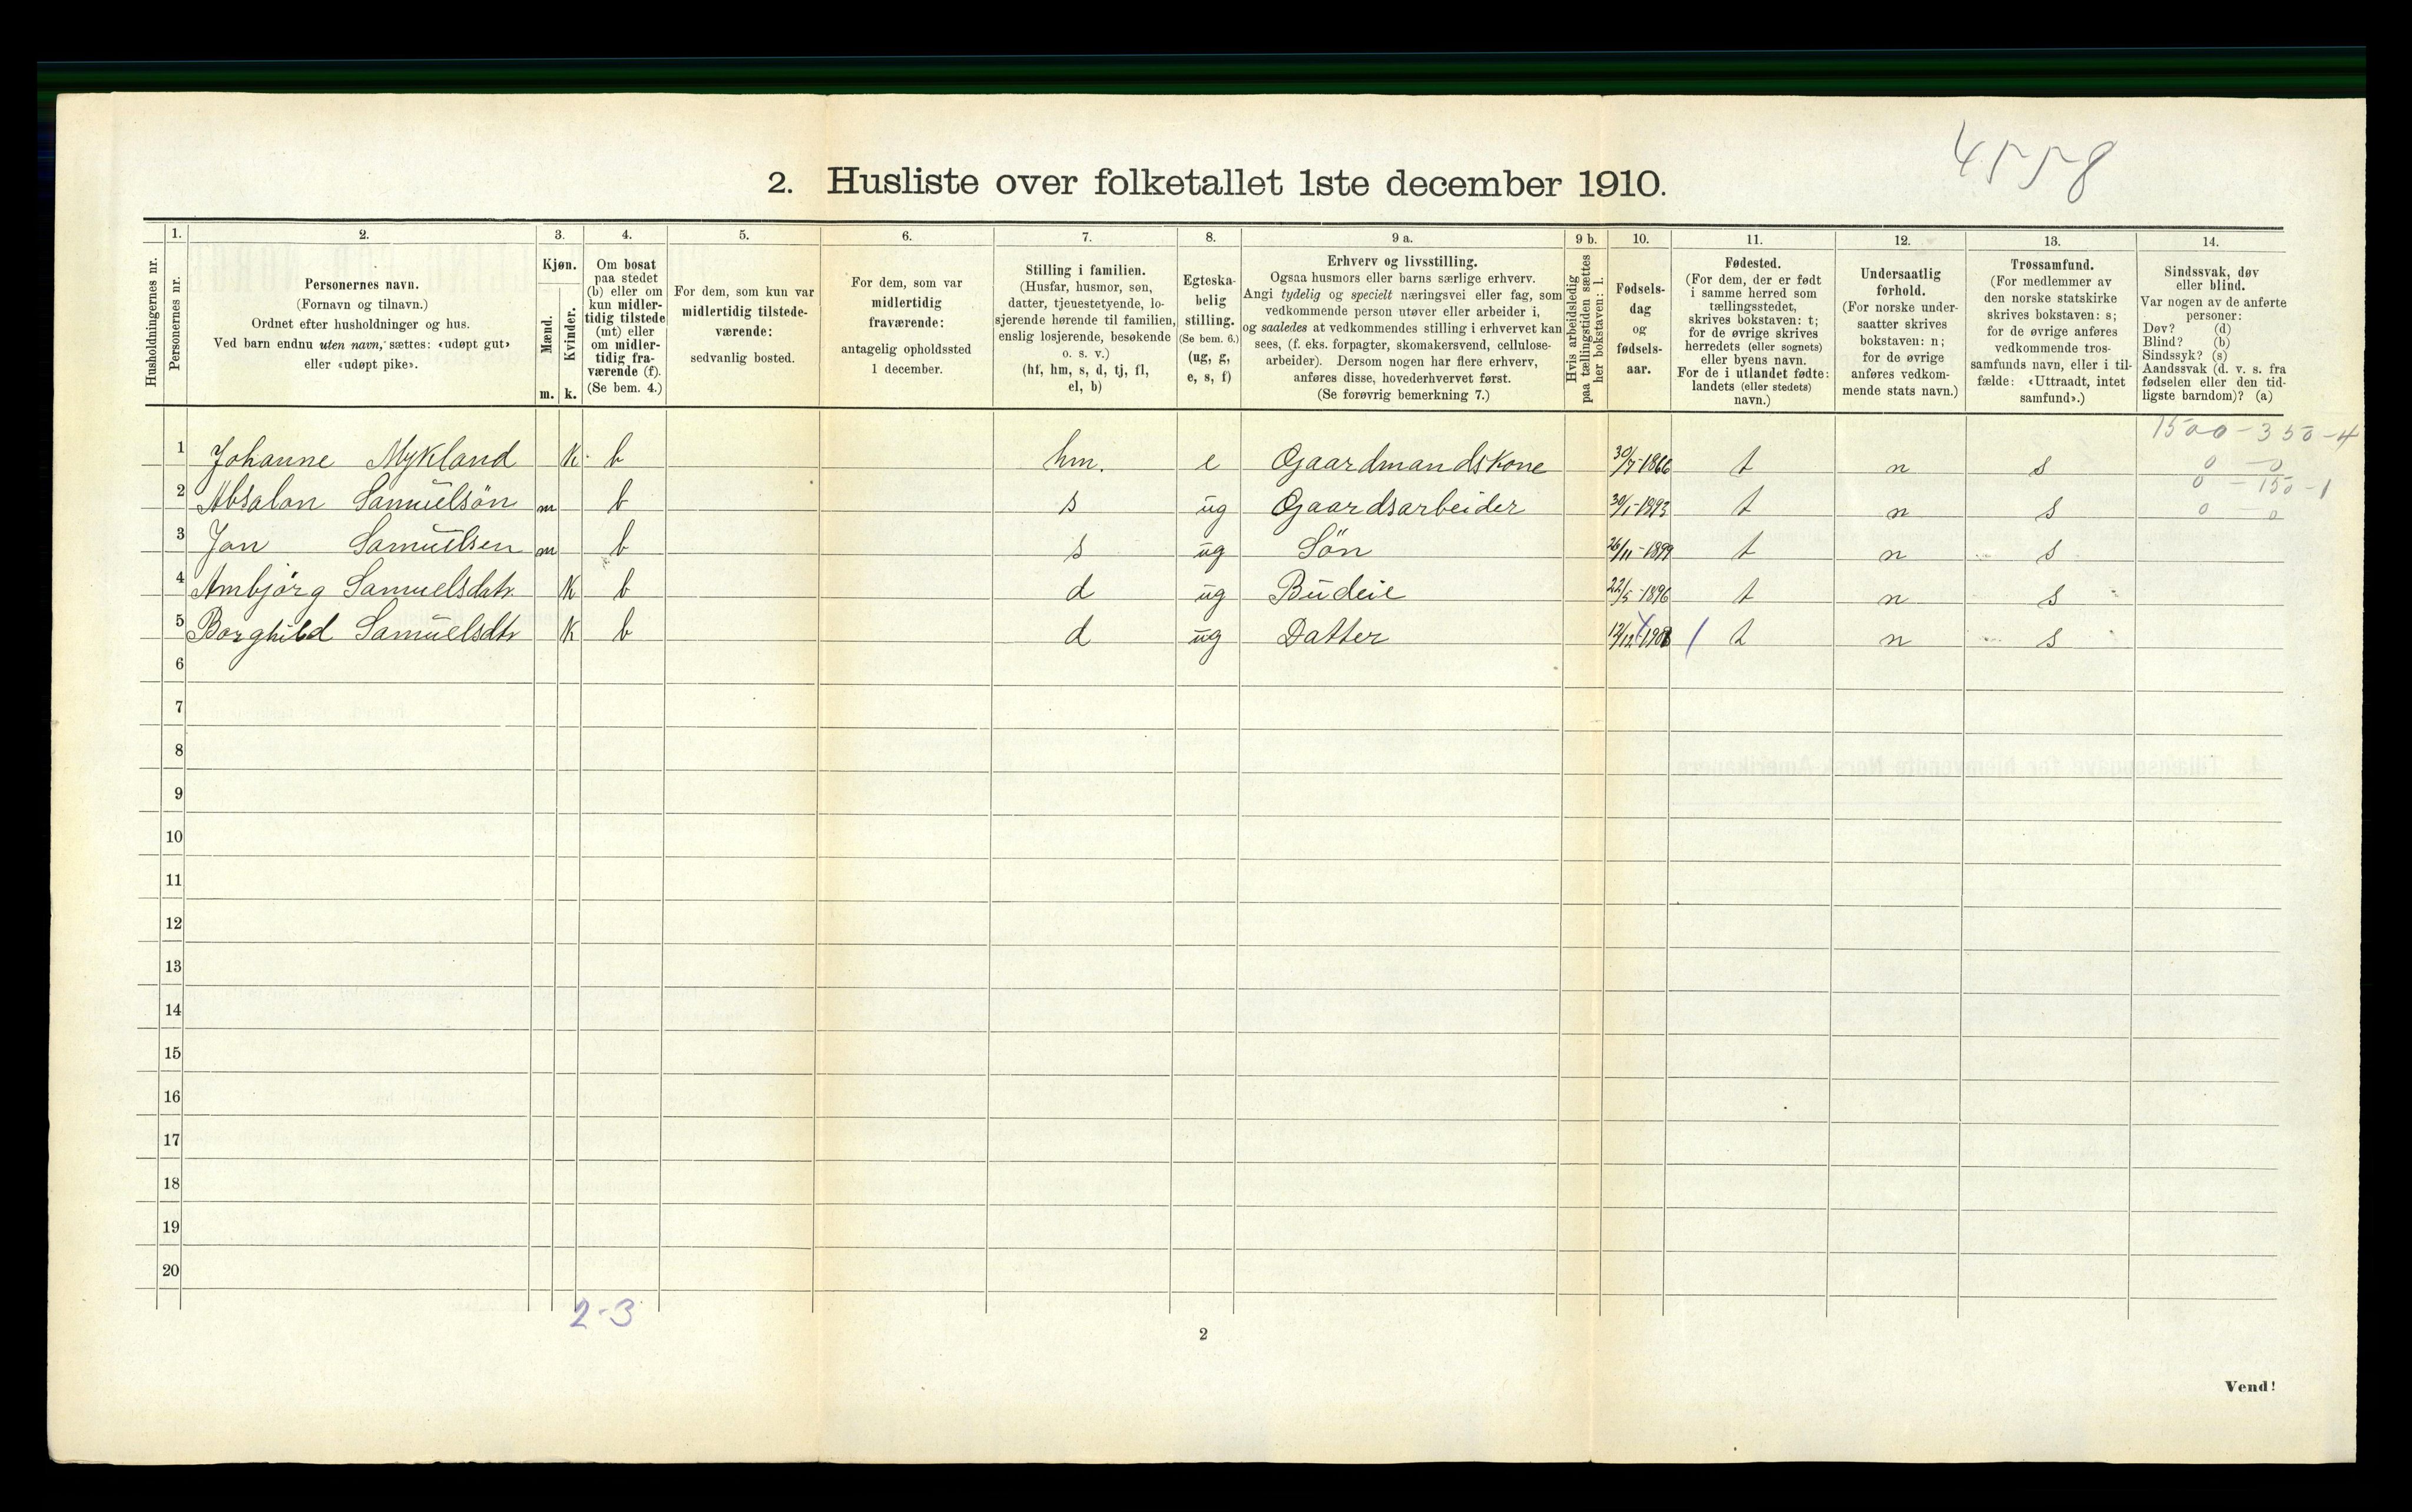 4558
2. Husliste over folketallet 1ste december 1910.
1. 2. 3. 4. 5. 6. 7. 8. 9 a. 9 b. 10. 11. 12. 13. 14.
Husholdningernes nr.
Personernes nr.
Personernes navn.
(Fornavn og tilnavn.)
Ordnet efter husholdninger og hus.
Ved barn endnu uten navn, sættes: «udøpt gut»
eller «udøpt pike».
Kjøn.
Mænd.
Kvinder.
m. k.
Om bosat
paa stedet
(b) eller om
kun midler-
tidig tilstede
(mt) eller
om midler-
tidig fra-
værende (f).
(Se bem. 4.)
For dem, som kun var
midlertidig tilstede-
værende:
sedvanlig bosted.
For dem, som var
midlertidig
fraværende:
antagelig opholdssted
1 december.
Stilling i familien.
(Husfar, husmor, søn,
datter, tjenestetyende, lo-
sjerende hørende til familien,
enslig losjerende, besøkende
o. s. v.)
(hf, hm, s, d, tj, fl,
el, b)
Egteska-
belig
stilling.
(Se bem. 6.)
(ug, g,
e, s, f)
Erhverv og livsstilling.
Ogsaa husmors eller barns særlige erhverv.
Angi tydelig og specielt næringsvei eller fag, som
vedkommende person utøver eller arbeider i,
og saaledes at vedkommendes stilling i erhvervet kan
sees, (f. eks. forpagter, skomakersvend, cellulose-
arbeider). Dersom nogen har flere erhverv,
anføres disse, hovederhvervet først.
(Se forøvrig bemerkning 7.)
Hvis arbeidsledig
paa tællingstiden sættes
her bokstaven: l.
Fødsels-
dag
og
fødsels-
aar.
Fødested.
(For dem, der er født
i samme herred som
tællingsstedet,
skrives bokstaven: t;
for de øvrige skrives
herredets (eller sognets)
eller byens navn.
For de i utlandet fødte:
landets (eller stedets)
navn.)
Undersaatlig
forhold.
(For norske under-
saatter skrives
bokstaven: n;
for de øvrige
anføres vedkom-
mende stats navn.)
Trossamfund.
(For medlemmer av
den norske statskirke
skrives bokstaven: s;
for de øvrige anføres
vedkommende tros-
samfunds navn, eller i til-
fælde: «Uttraadt, intet
samfund».)
Sindssvak, døv
eller blind.
Var nogen av de anførte
personer:
Døv? (d)
Blind? (b)
Sindssyk? (s)
Aandssvak (d. v. s. fra
fødselen eller den tid-
ligste barndom)? (a)
1500 - 350 - 4
1 Johanne Mykland K b hm. e Gaardmandskone 30/7-1866 t n s 0 - 0
0 - 150 - 1
2 Absalon Samuelsön m b s ug Gaardsarbeider 30/1-1893 t n s 0 - 0
3 Jan Samuelsen m b s ug Sön 26/11-1899 t n s
4 Ambjörg Samuelsdatr K b d ug Budeie 22/5-1896 t n s
5 Borghild Samuelsdtr K b d ug Datter t n s
6
7
8
9
10
11
12
13
14
15
16
17
18
19
20
2-3
2
Vend!